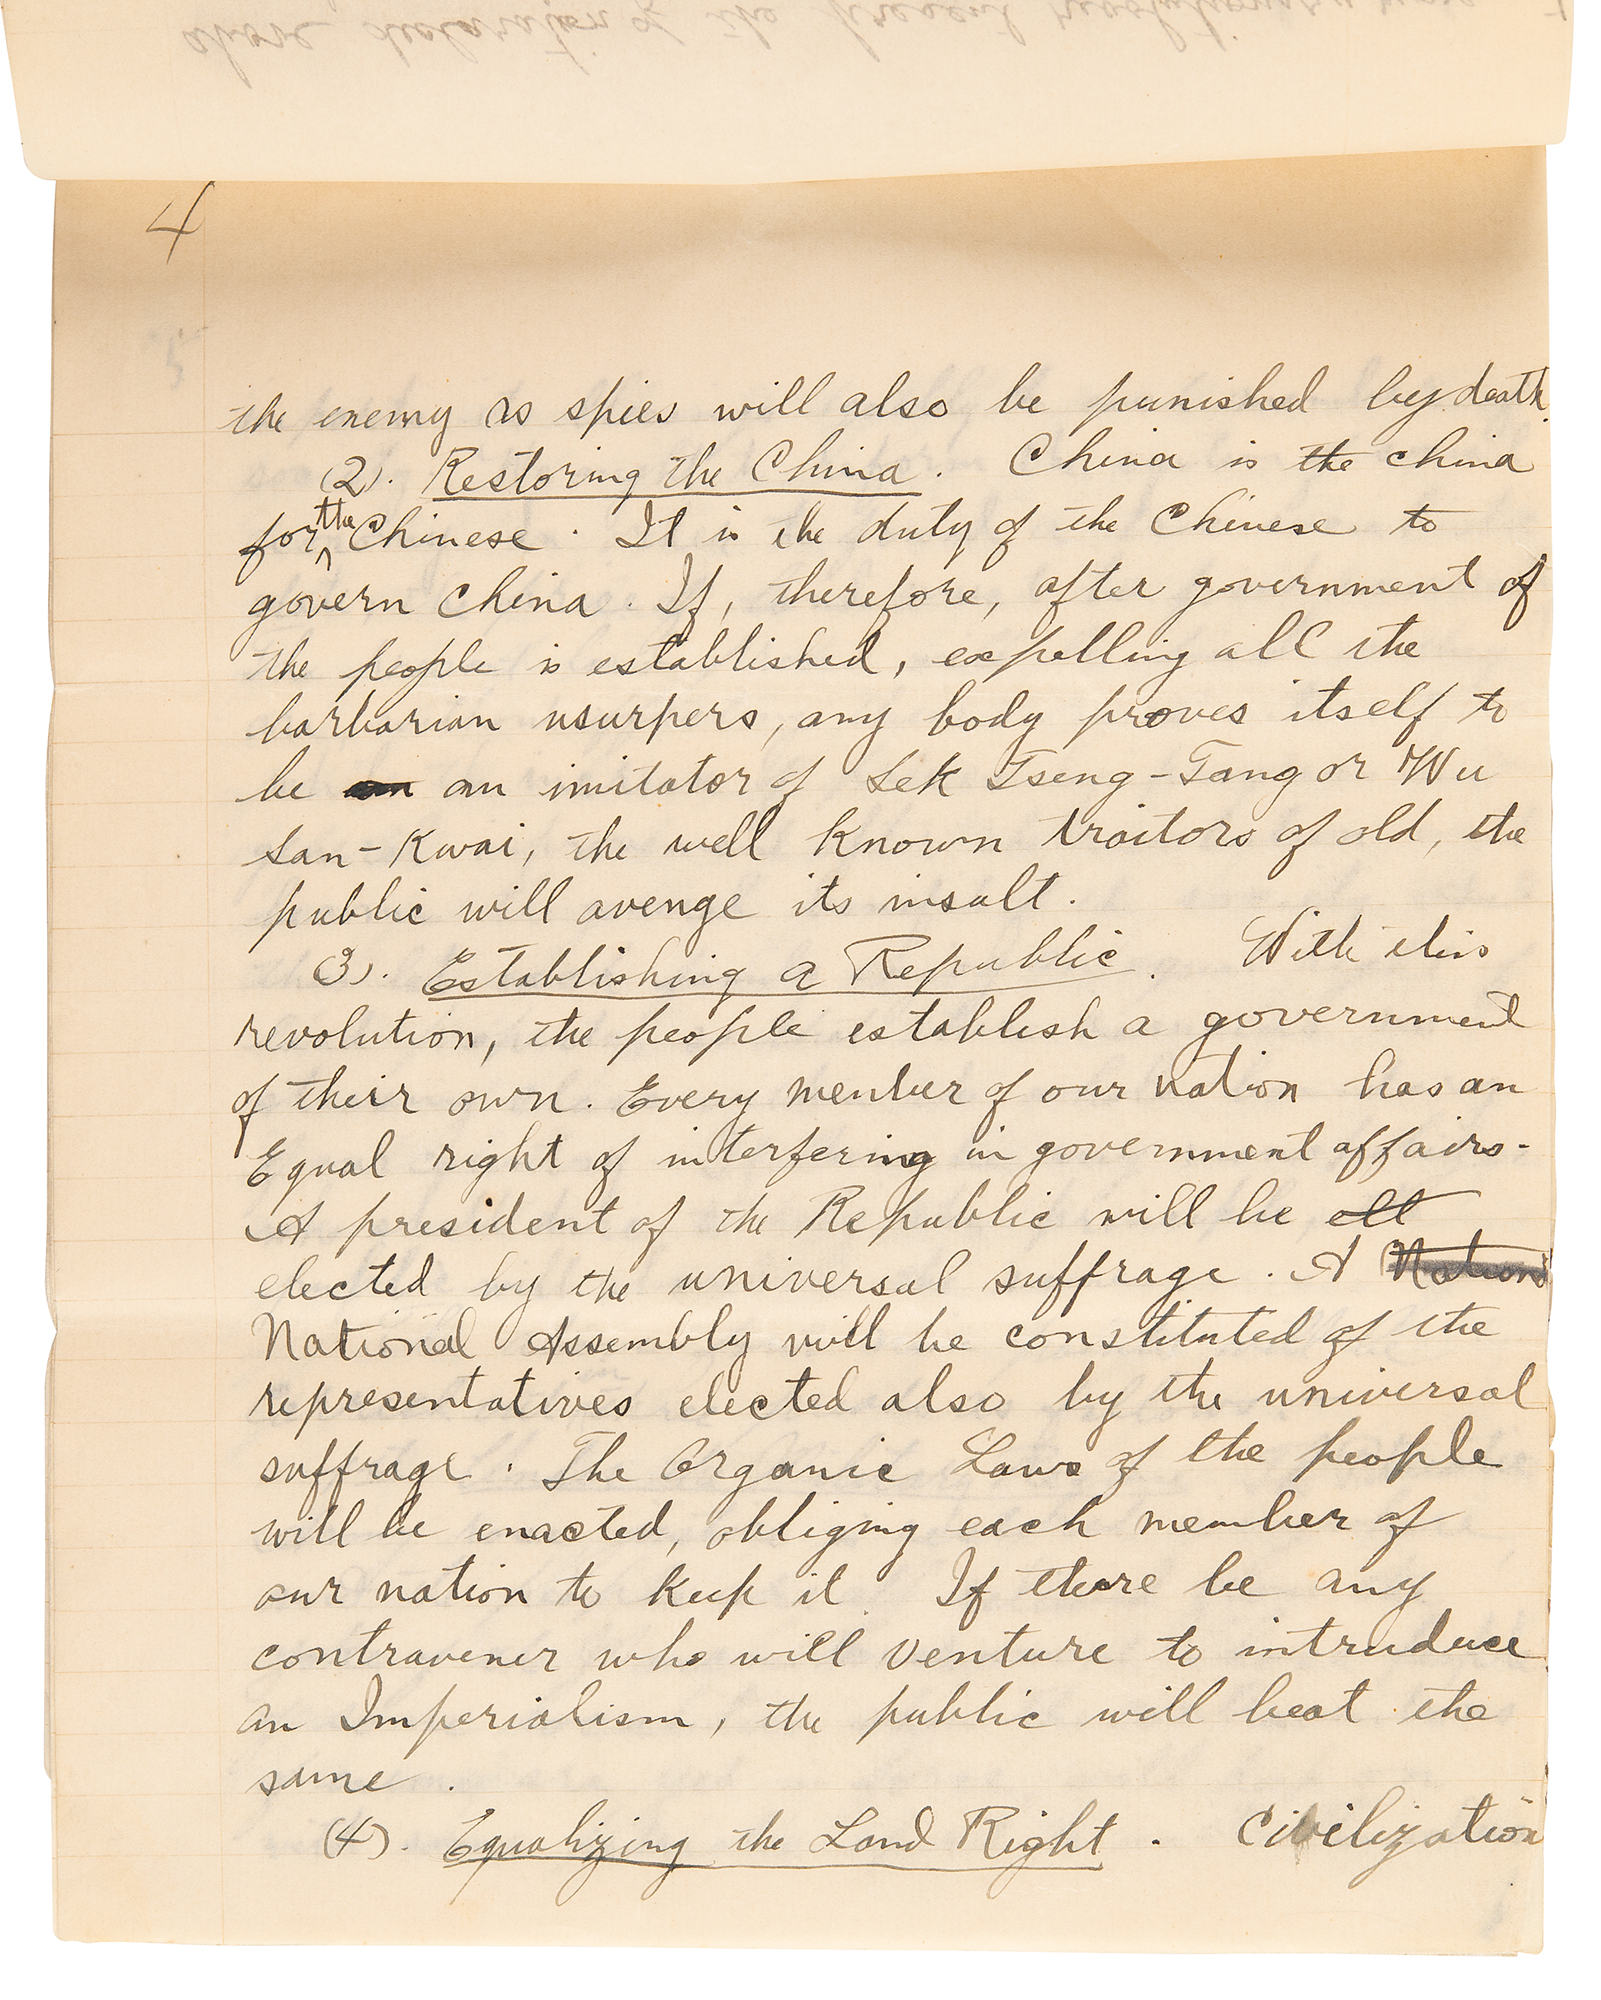 above declaration of the present revolutionary
4
the enemy as spies will also be punished by death.
(2). Restoring the China. China is the china
for the Chinese. It is the duty of the Chinese to
govern China. If, therefore, after government of
the people is established, expelling all the
barbarian usurpers, any body proves itself to
be an an imitator of Sek Tseng-Tang or Wu
San-Kwai, the well known traitors of old, the
public will avenge its insult.
(3). Establishing a Republic. With this
revolution, the people establish a government
of their own. Every member of our nation has an
Equal right of interfering in government affairs-
A president of the Republic will be elt
elected by the universal suffrage. A National
National Assembly will be constituted of the
representatives elected also by the universal
suffrage. The Organic Laws of the people
will be enacted, obliging each member of
our nation to keep it. If there be any
contravener who will venture to intruduce
an Imperialism, the public will beat the
same.
(4). Equalizing the Land Right. Civilization